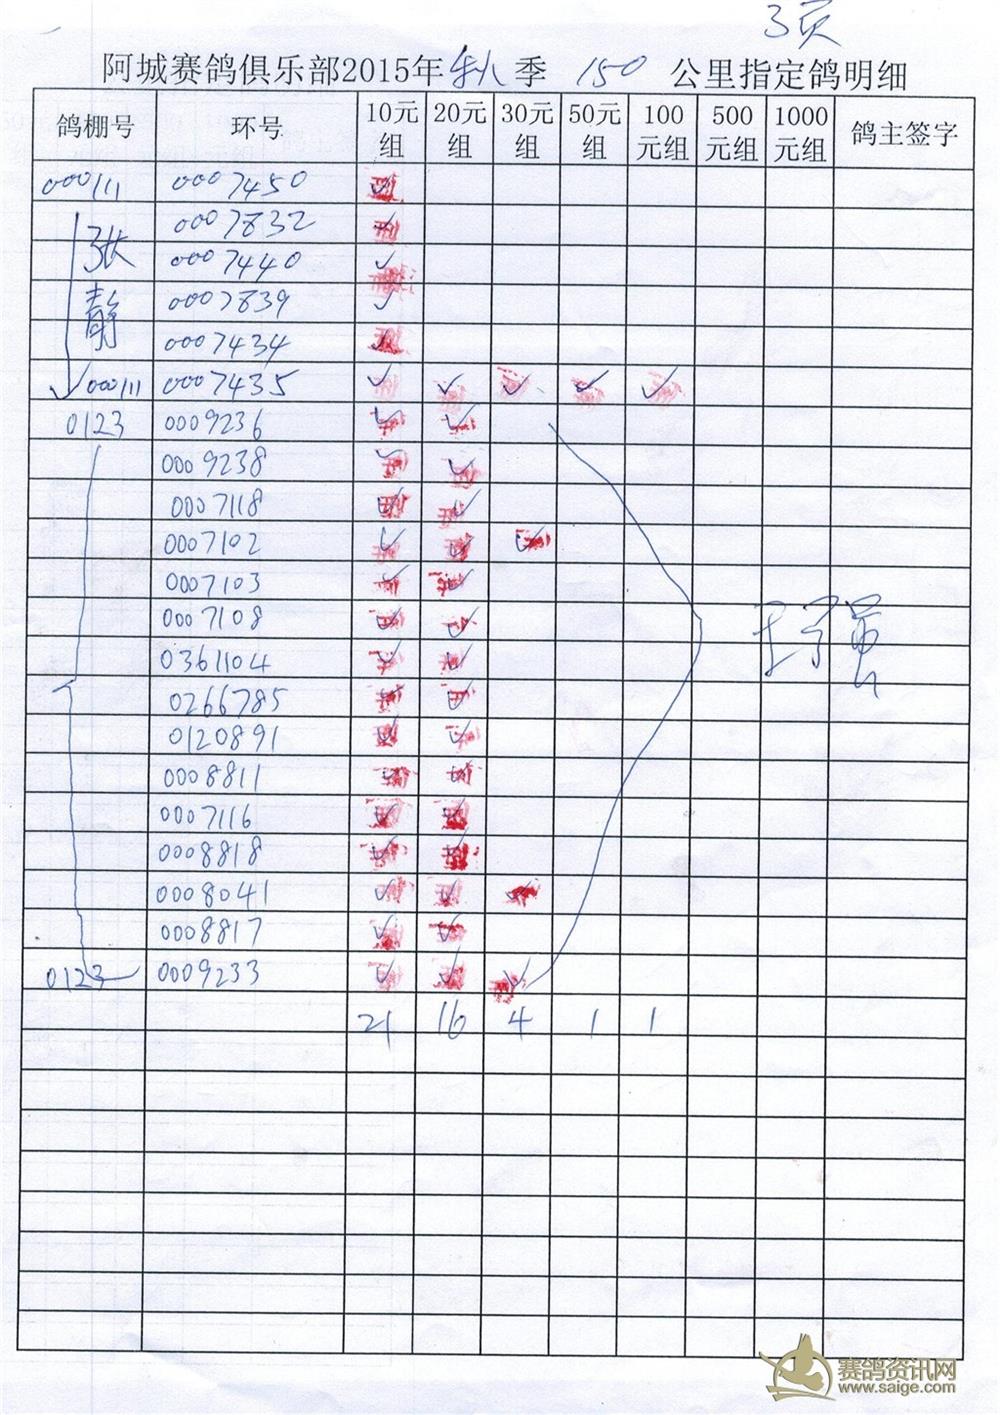 3页
阿城赛鸽俱乐部2015年秋季 150 公里指定鸽明细
鸽棚号 环号 10元组 20元组 30元组 50元组 100元组 500元组 1000元组 鸽主签字
000111 0007450 ✓
0007832 ✓
张 0007440 ✓
静 0007839 ✓
0007434 ✓
000111 0007435 ✓ ✓ ✓ ✓ ✓
0123 0009236 ✓ ✓
0009238 ✓ ✓
0007118 ✓ ✓
0007102 ✓ ✓ ✓
0007103 ✓ ✓
0007108 ✓ ✓
0361104 ✓ ✓
0266785 ✓ ✓
0120891 ✓ ✓
0008811 ✓ ✓
0007116 ✓ ✓
0008818 ✓ ✓
0008041 ✓ ✓ ✓
0008817 ✓ ✓
0123 0009233 ✓ ✓ ✓
21 16 4 1 1
赛鸽资讯网
www.saige.com